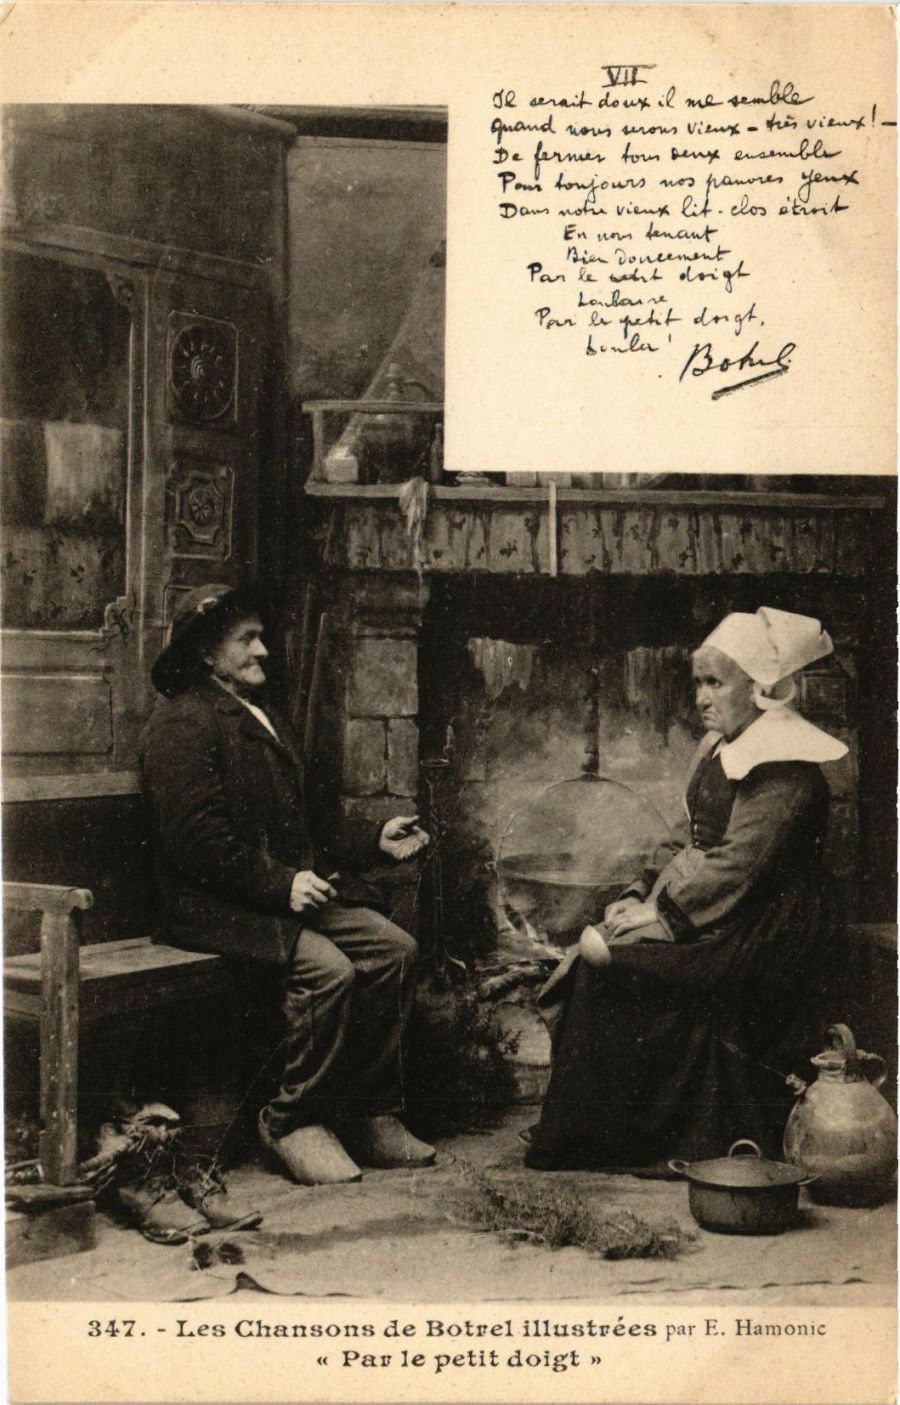 VII
Il serait doux il me semble
Quand nous serons vieux - très vieux! -
De fermer tous deux ensemble
Pour toujours nos pauvres yeux
Dans notre vieux lit-clos étroit
En nous tenant
Bien Doucement
Par le petit doigt
Lonlaire
Par le petit doigt,
Lonla!
Botrel.
347. - Les Chansons de Botrel illustrées par E. Hamonic
« Par le petit doigt »